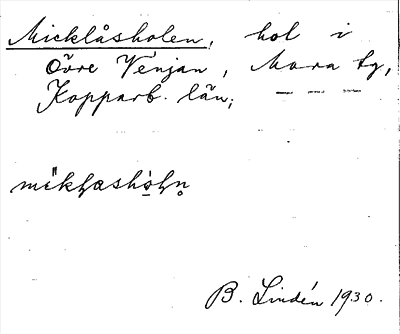 Micklåsholen, hol i
Övre Venjan, Mora tg,
Kopparb. län;
B. Lindén 1930.